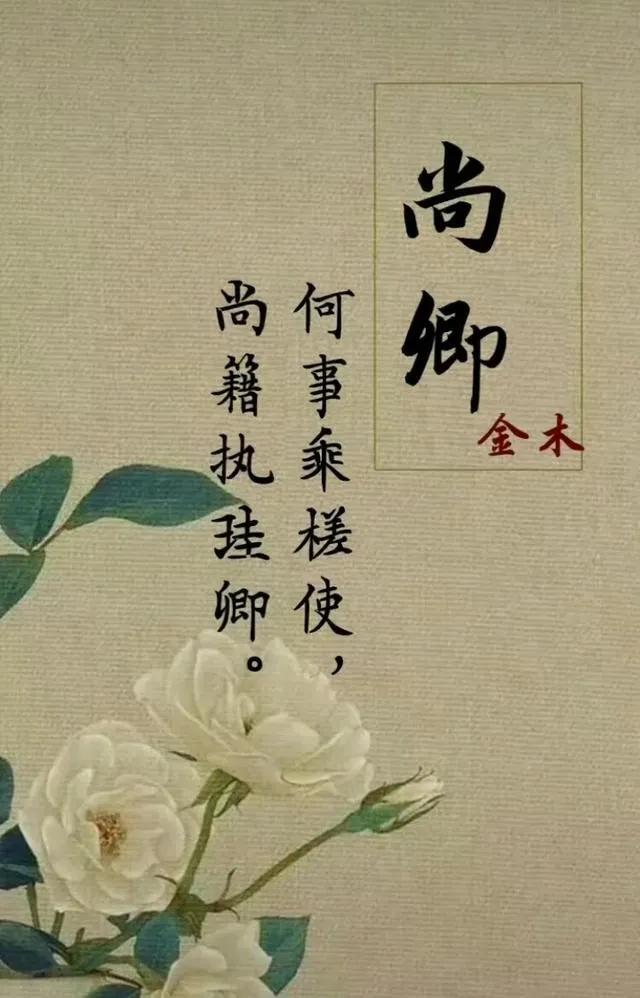 尚卿
金木
何事乘槎使，
尚籍执珪卿。